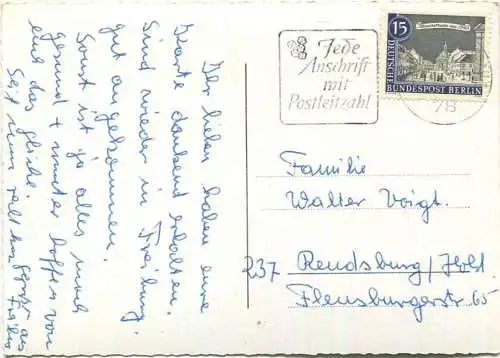 Ihr Lieben haben eure
Karte dankend erhalten.
Sind wieder in Freiburg
gut angekommen.
Sonst ist ja alles noch
gesund + munter hoffen von
euch das gleiche.
Seit nun recht herz. gegrüßt aus
Jede
Anschrift
mit
Postleitzahl
15
DEUTSCHE
BUNDESPOST BERLIN
78
Familie
Walter Voigt.
237 Rendsburg/Holst
Flensburgerstr 65